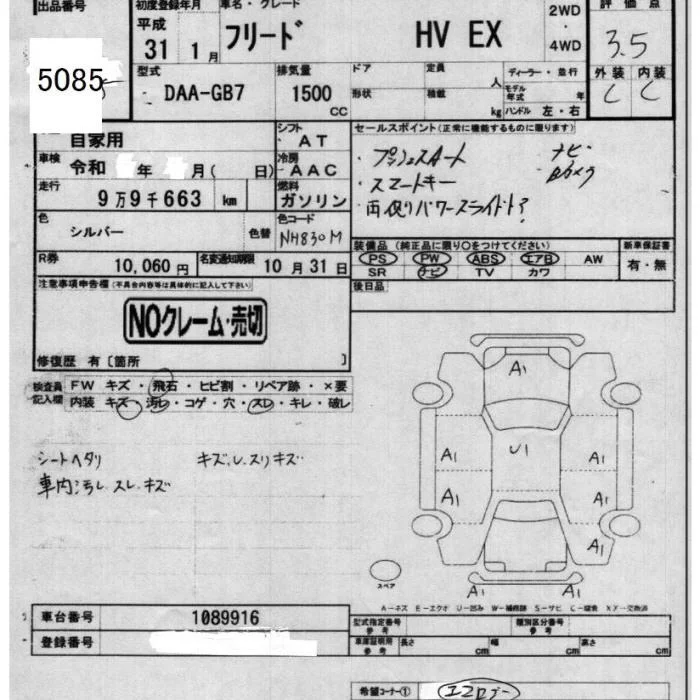 出品番号 初度登録年月 車名・グレード 2WD 評価点
平成 31 1月 フリード HV EX ・ 4WD 3.5
5085
型式 排気量 ドア 定員 人 ディーラー・並行 外装 内装
DAA-GB7 1500 CC 形状 積載 kg モデル年式 年 C C
ハンドル 左・右
自家用 シフト AT セールスポイント(正常に機能するものに限ります)
車検 令和 年 月( 日) 冷房 AAC ・プッシュスタート ナビ
走行 9万9千663 km 燃料 ガソリン ・スマートキー Bカメラ
色 シルバー 色替 色コード NH830M ・両側パワースライドドア
R券 10,060円 名変通知期限 10月31日 装備品(純正品に限り○をつけてください) 新車保証書
PS PW ABS エアB AW 有・無
SR ナビ TV カワ
注意事項申告欄(不具合内容等は具体的に記入して下さい) 後日品
NOクレーム・売切
修復歴 有〔箇所 〕
検査員記入欄 FW キズ・飛石・ヒビ割・リペア跡・×要
内装 キズ・汚レ・コゲ・穴・スレ・キレ・破レ
シートヘタリ キズし、スリキズ
車内汚し、スレ、キズ
A1
A1 U1 A1
A1 A1
A1
スペア A1 A1
A-キズ E-エクボ U-凹み W-補修跡 S-サビ C-腐食 XX-交換済
車台番号 1089916 型式指定番号 参考 類別区分番号 参考
登録番号 車庫証明用 参考 長さ cm 幅 cm 高さ cm
希望コーナー① エコロジー